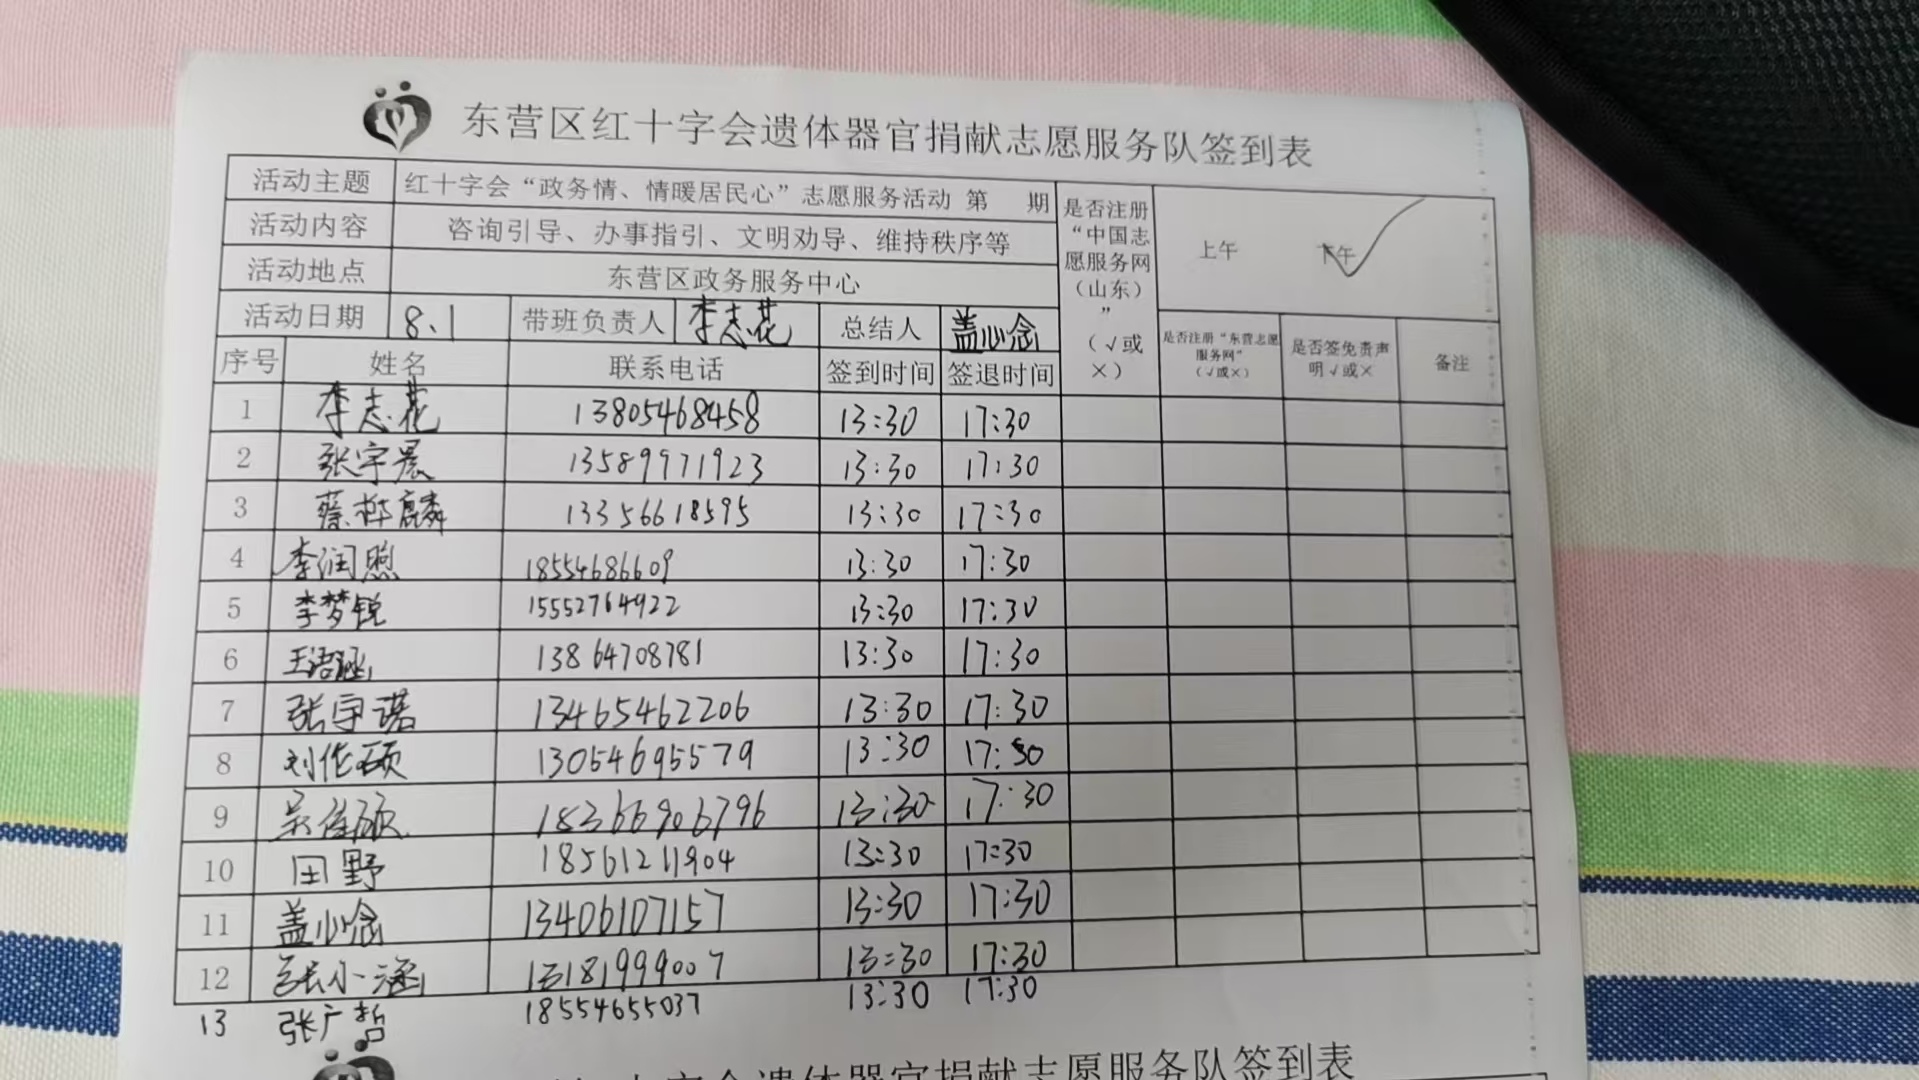 东营区红十字会遗体器官捐献志愿服务队签到表
活动主题 红十字会“政务情、情暖居民心”志愿服务活动 第 期
是否注册“中国志愿服务网（山东）”（√或×）
上午 下午 √
活动内容 咨询引导、办事指引、文明劝导、维持秩序等
活动地点 东营区政务服务中心
活动日期 8.1 带班负责人 李志花 总结人 盖心念
序号 姓名 联系电话 签到时间 签退时间 是否注册“东营志愿服务网”（√或×） 是否签免责声明√或× 备注
1 李志花 13805468458 13:30 17:30
2 张宇晨 13589971923 13:30 17:30
3 蔡桦麟 13356618595 13:30 17:30
4 李润煦 18554686609 13:30 17:30
5 李梦锐 15552764922 13:30 17:30
6 王语涵 13864708781 13:30 17:30
7 张宇诺 13465462206 13:30 17:30
8 刘佐硕 13054695579 13:30 17:30
9 吴佳硕 18366906796 13:30 17:30
10 田野 18561211904 13:30 17:30
11 盖心念 13406107157 13:30 17:30
12 张小涵 13181999007 13:30 17:30
13 张广哲 18554655037 13:30 17:30
十字会遗体器官捐献志愿服务队签到表